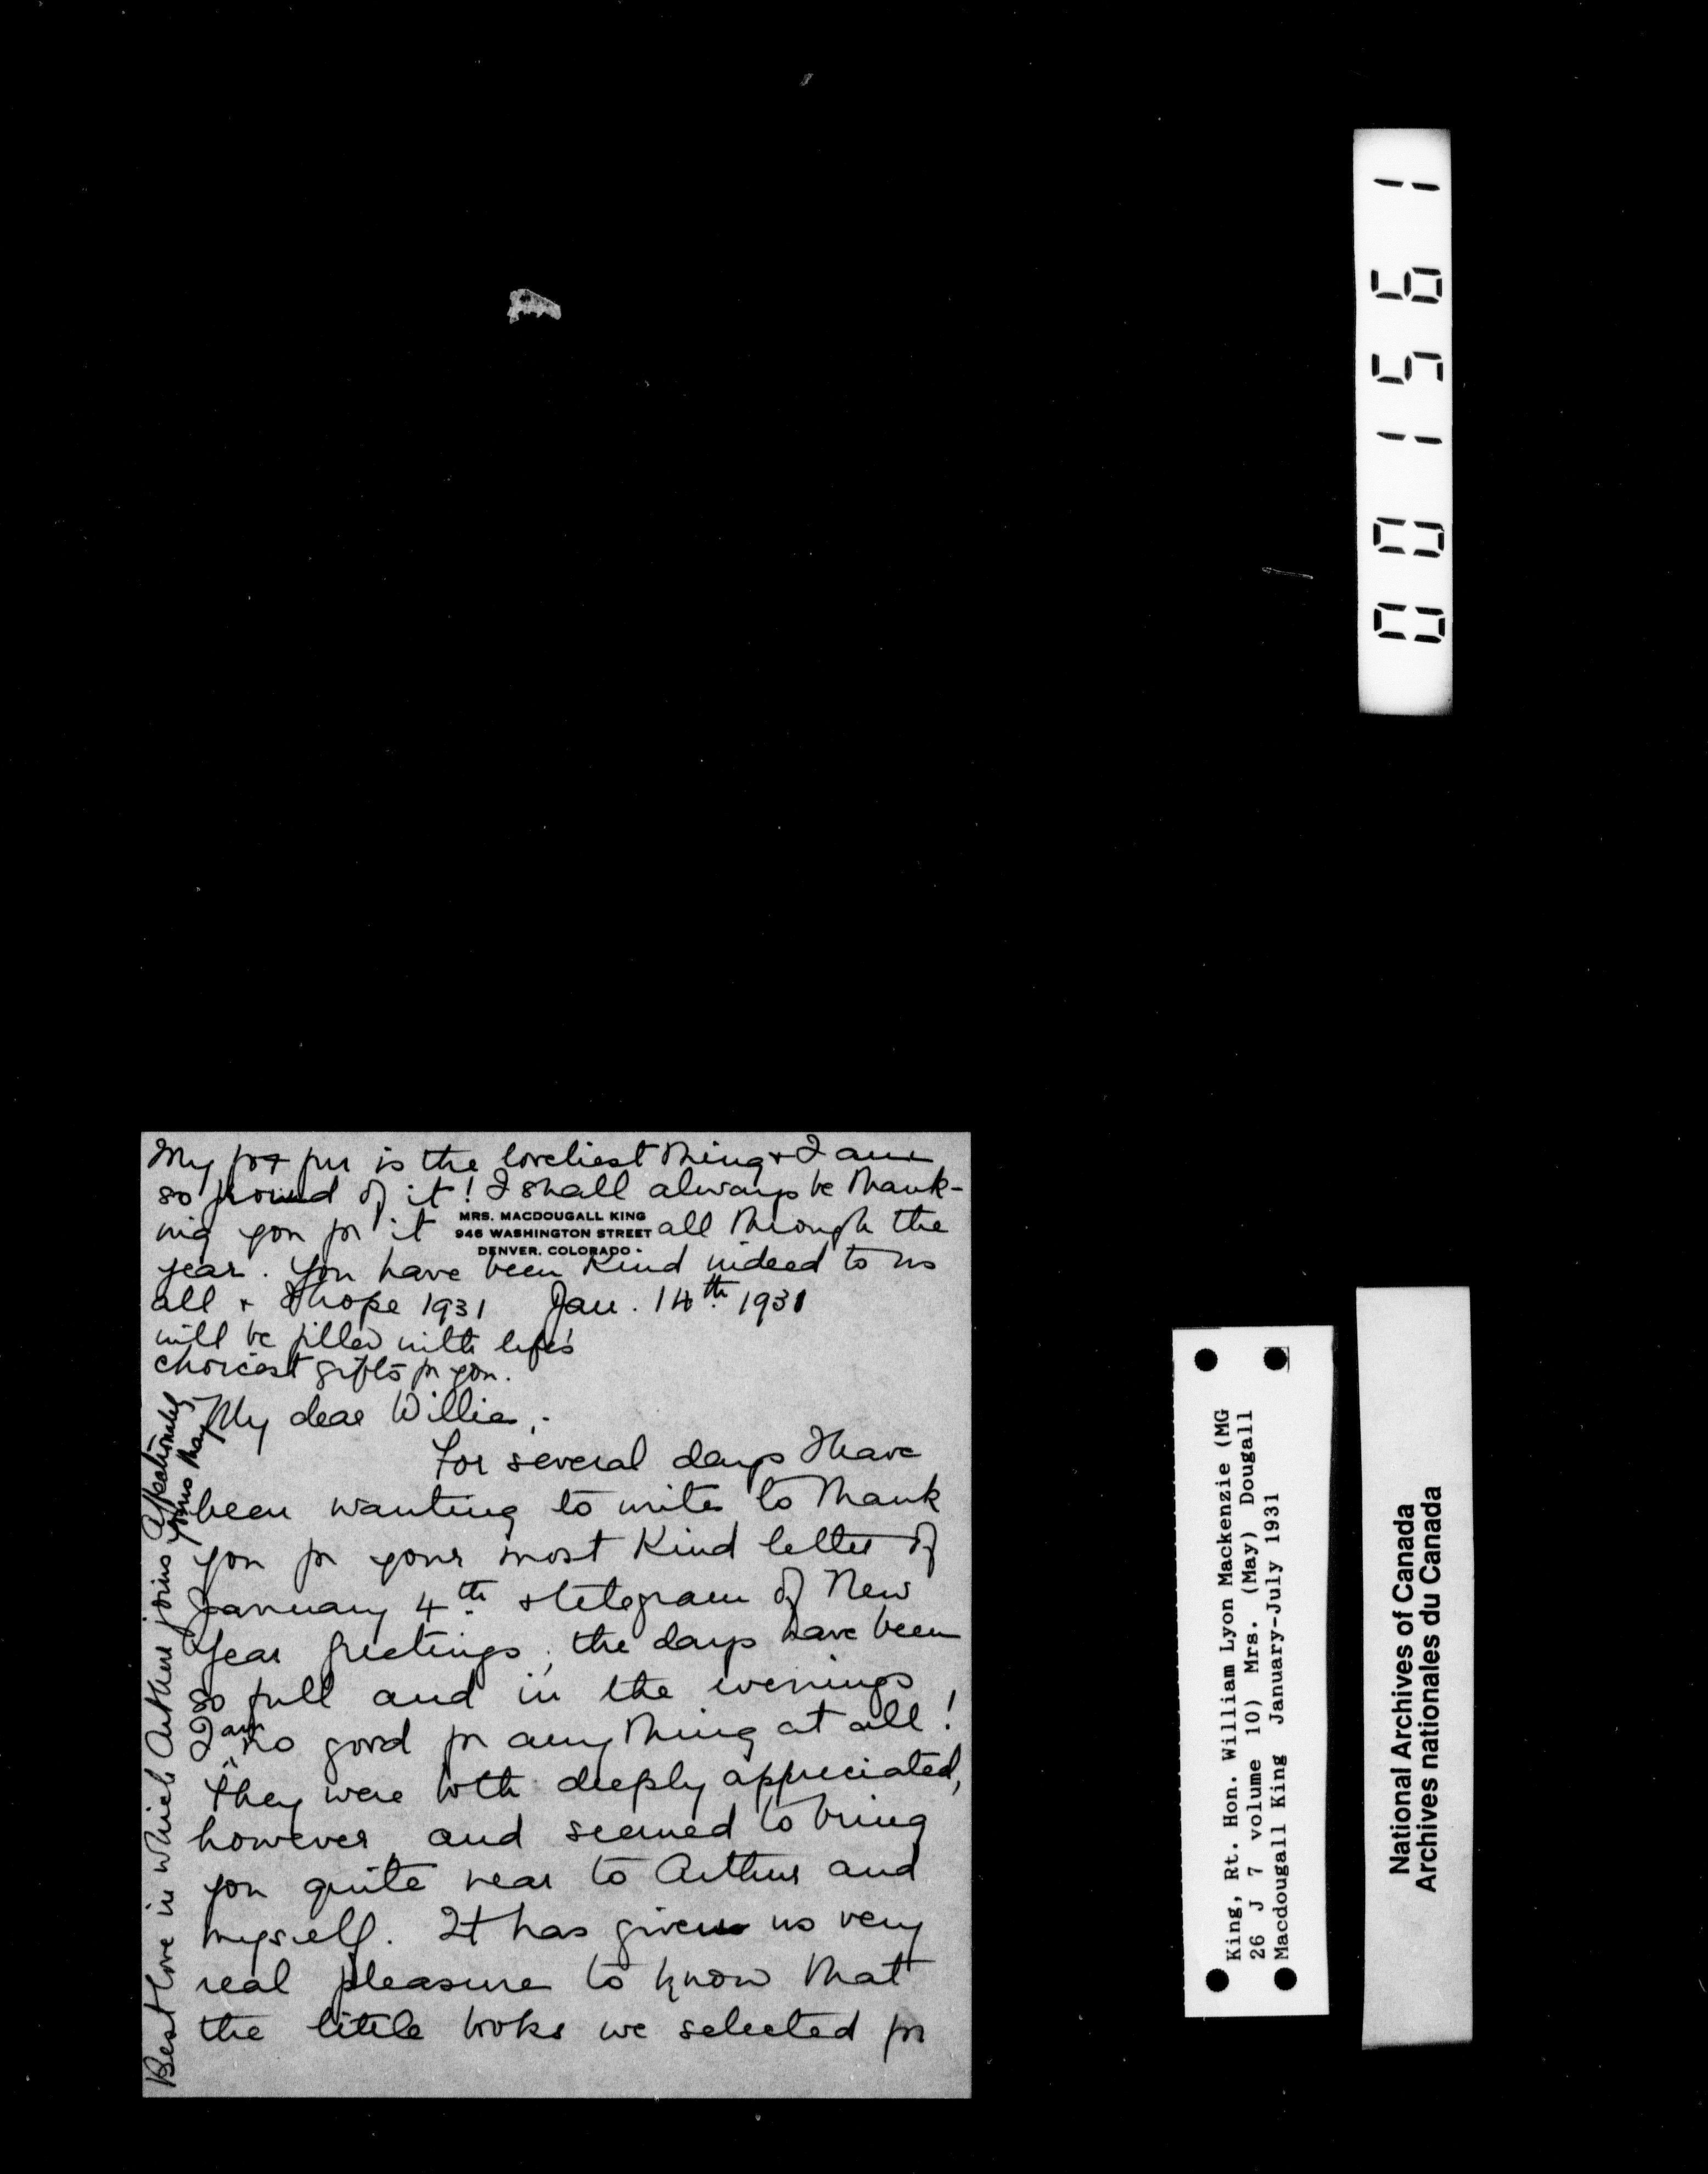 My fox fur is the loveliest thing & I am
so proud of it! I shall always be thank-
ing you for it all through the
year. You have been kind indeed to us
all & I hope 1931
will be filled with life's
choicest gifts for you.
MRS. MACDOUGALL KING
946 WASHINGTON STREET
DENVER, COLORADO
Jan. 14th 1931
My dear Willie,
For several days I have
been wanting to write to thank
you for your most kind letter of
January 4th & telegram of New
Year greetings; the days have been
so full and in the evenings
I am no good for anything at all!
They were both deeply appreciated,
however and seemed to bring
you quite near to Arthur and
myself. It has given us very
real pleasure to know that
the little books we selected for
Best love in which Arthur joins affectionately
yours May
001561
King, Rt. Hon. William Lyon Mackenzie (MG
26 J 7 volume 10) Mrs. (May) Dougall
Macdougall King January-July 1931
National Archives of Canada
Archives nationales du Canada